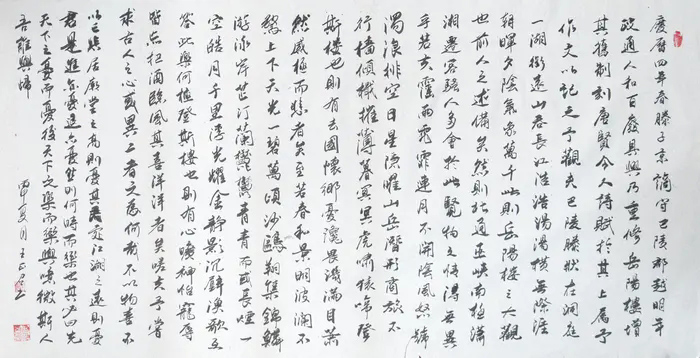 慶曆四年春滕子京謫守巴陵郡越明年
政通人和百廢具興乃重修岳陽樓增
其舊制刻唐賢今人詩賦於其上屬予
作文以記之予觀夫巴陵勝狀在洞庭
一湖銜遠山吞長江浩浩湯湯橫無際涯
朝暉夕陰氣象萬千此則岳陽樓之大觀
也前人之述備矣然則北通巫峽南極瀟
湘遷客騷人多會於此覽物之情得無異
乎若夫霪雨霏霏連月不開陰風怒號
濁浪排空日星隱耀山岳潛形商旅不
行檣傾楫摧薄暮冥冥虎嘯猿啼登
斯樓也則有去國懷鄉憂讒畏譏滿目蕭
然感極而悲者矣至若春和景明波瀾不
驚上下天光一碧萬頃沙鷗翔集錦鱗
游泳岸芷汀蘭鬱鬱青青而或長煙一
空皓月千里浮光耀金靜影沉璧漁歌互
答此樂何極登斯樓也則有心曠神怡寵辱
皆忘把酒臨風其喜洋洋者矣嗟夫予嘗
求古人之心或異二者之為何哉不以物喜不
以己悲居廟堂之高則憂其處江湖之遠則憂
君是進亦憂退亦憂然則何時而樂也其必曰先
天下之憂而憂後天下之樂而樂與噫微斯人
吾誰與歸